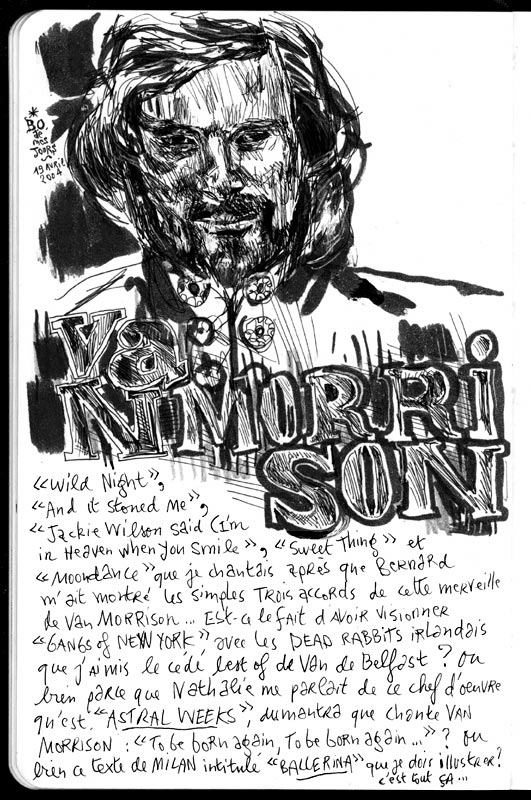 * B.O. de mes JOURS
19 AVRIL 2004
VAN MORRISON
«Wild Night»,
«And it stoned Me»,
«Jackie Wilson said (I'm
in Heaven when you smile»), «Sweet Thing» et
«Moondance» que je chantais après que BERNARD
m'ait montré les simples TROIS accords de cette merveille
de Van MORRISON... EST-ce le fait d'AVOIR VISIONNER
«GANGS of NEW YORK» avec les DEAD RABBITS IRLANDAIS
que j'ai mis le cédé best of de Van de Belfast ? ou
bien parce que Nathalie me parlait de ce chef d'oeuvre
qu'est «ASTRAL WEEKS», du mantra que chante VAN
MORRISON : «To be born again, To be born again...» ? ou
bien ce texte de MILAN intitulé «BALLERINA» que je dois illustrer ?
c'est tout ÇA...